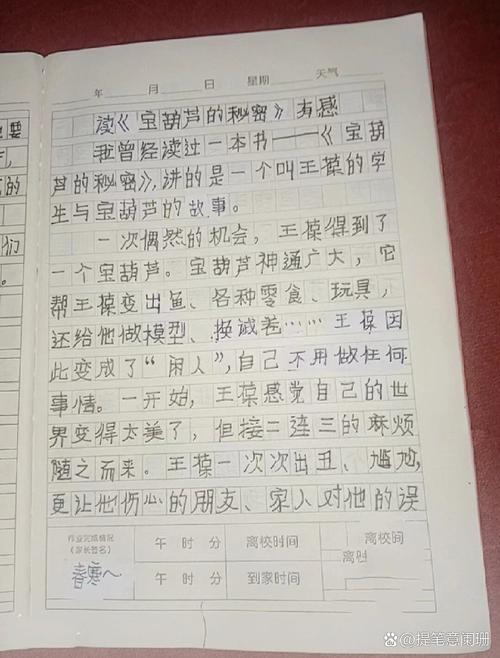 年 月 日 星期 天气
读《宝葫芦的秘密》有感
我曾经读过一本书——《宝葫
芦的秘密》,讲的是一个叫王葆的学
生与宝葫芦的故事。
一次偶然的机会,王葆得到了
一个宝葫芦。宝葫芦神通广大,它
帮王葆变出鱼、各种零食、玩具,
还给他做模型、换试卷……王葆因
此变成了“闲人”,自己不用做任何
事情。一开始,王葆感觉自己的世
界变得太美了,但接二连三的麻烦
随之而来。王葆一次次出丑、尴尬,
更让他伤心的朋友、家人对他的误
作业完成情况
(家长签名)
午 时 分
离校时间
离校间
离
午 时 分
到家时间
春寒~
也要
的
们
@提笔意阑珊